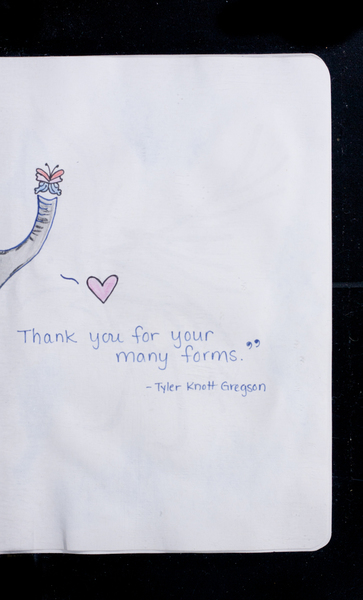 Thank you for your
many forms."
- Tyler Knott Gregson